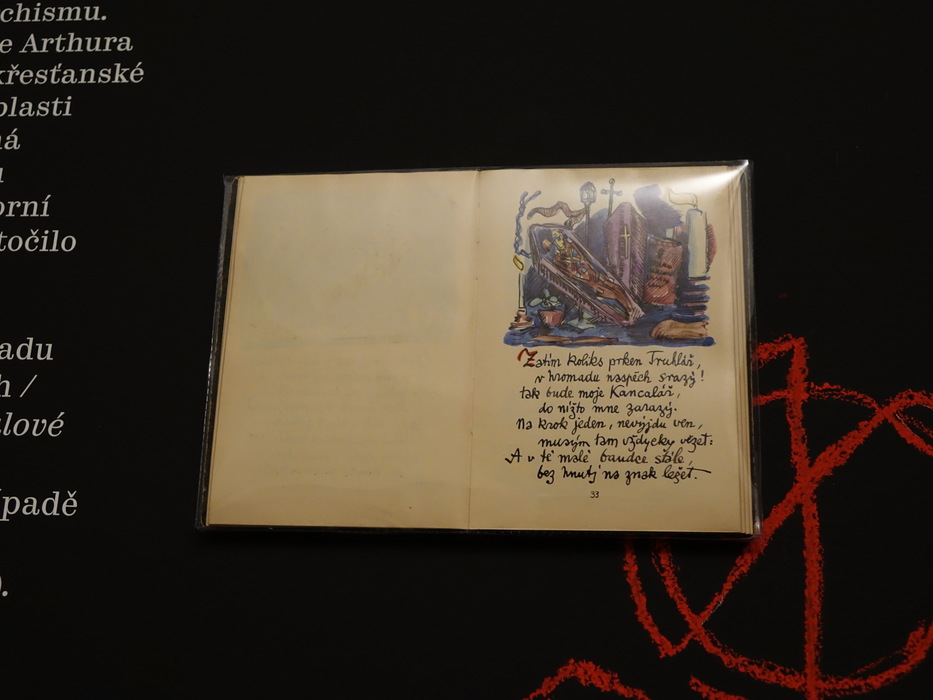 chismu.
e Arthura
křesťanské
blasti
ná
orní
točilo
adu
h /
lové
ípadě
).
Zatím koliks prken Truhlář,
v hromadu naspěch srazý!
tak bude moje Kancalář,
do nížto mne zarazý.
Na krok jeden, nevýjdu ven,
musým tam vždycky vězet:
A v té malé baudce stále,
bez hnutj na znak ležet.
33